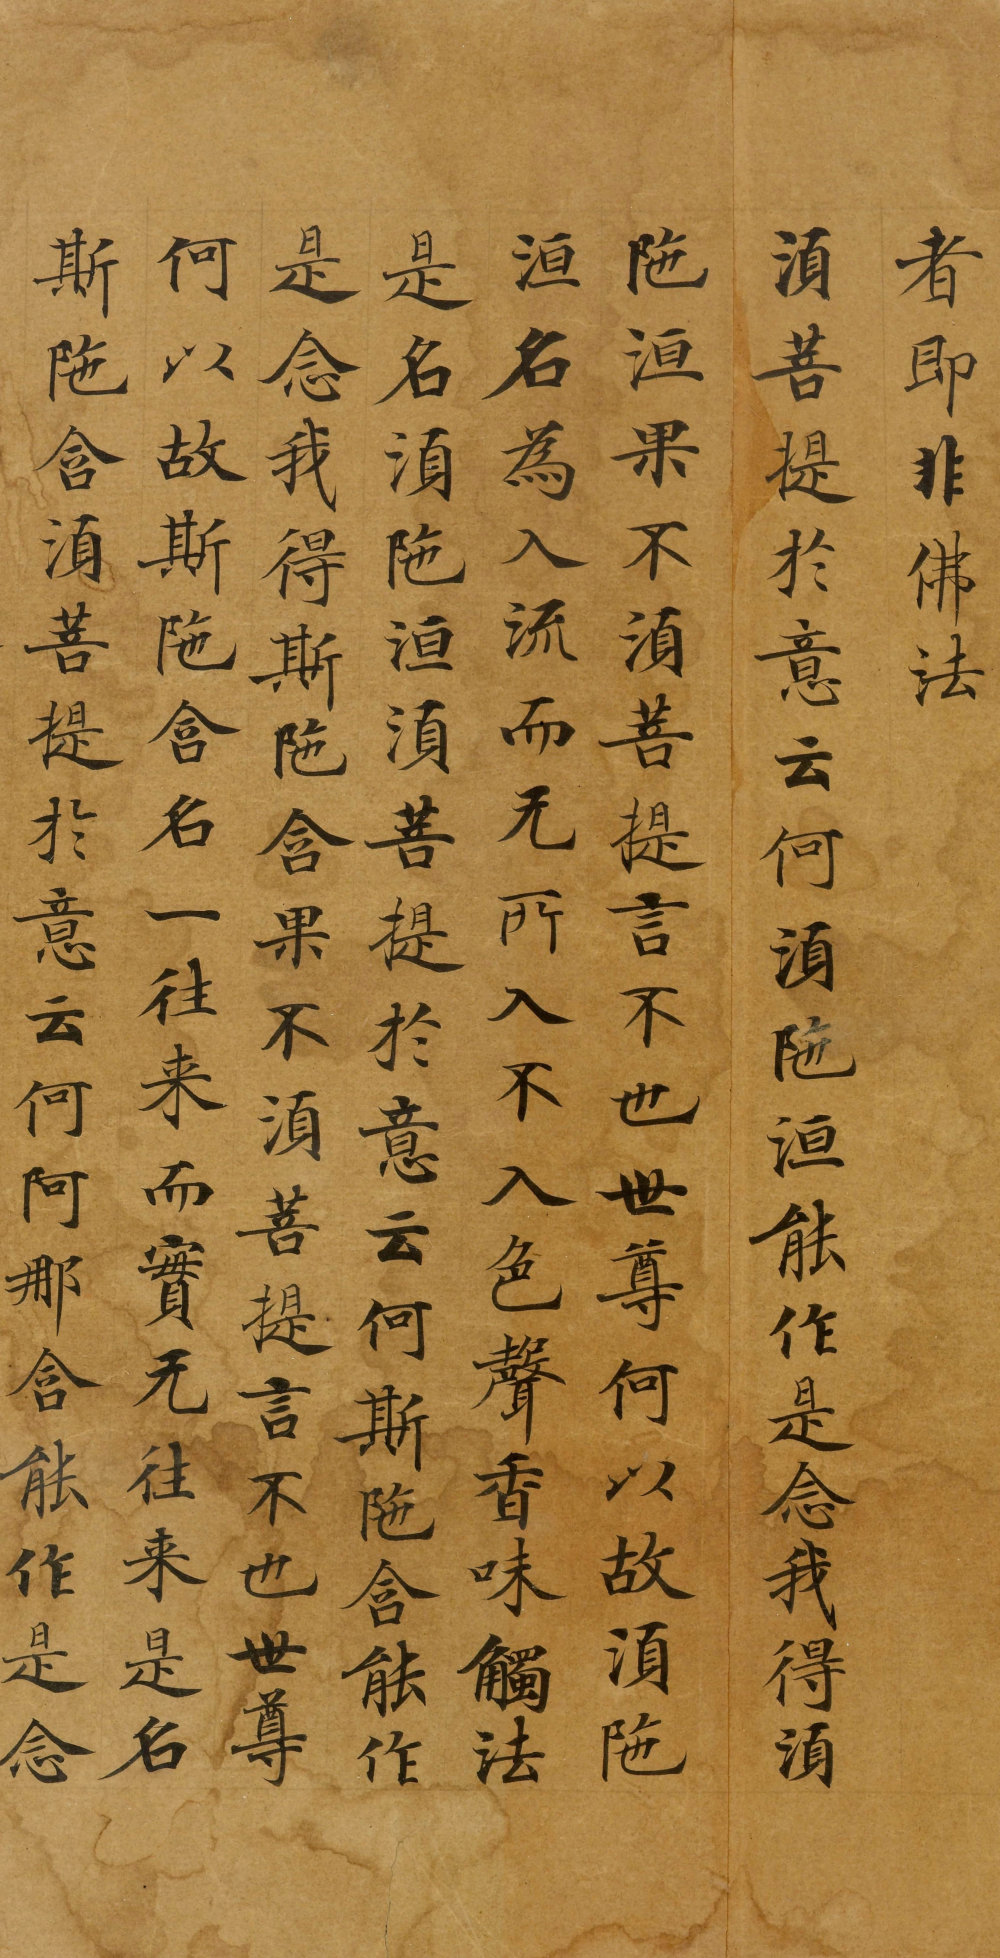 者即非佛法
湏菩提於意云何湏陁洹能作是念我得湏
陁洹果不湏菩提言不也世尊何以故湏陁
洹名為入流而无所入不入色聲香味觸法
是名湏陁洹湏菩提於意云何斯陁含能作
是念我得斯陁含果不湏菩提言不也世尊
何以故斯陁含名一往来而實无往来是名
斯陁含湏菩提於意云何阿那含能作是念